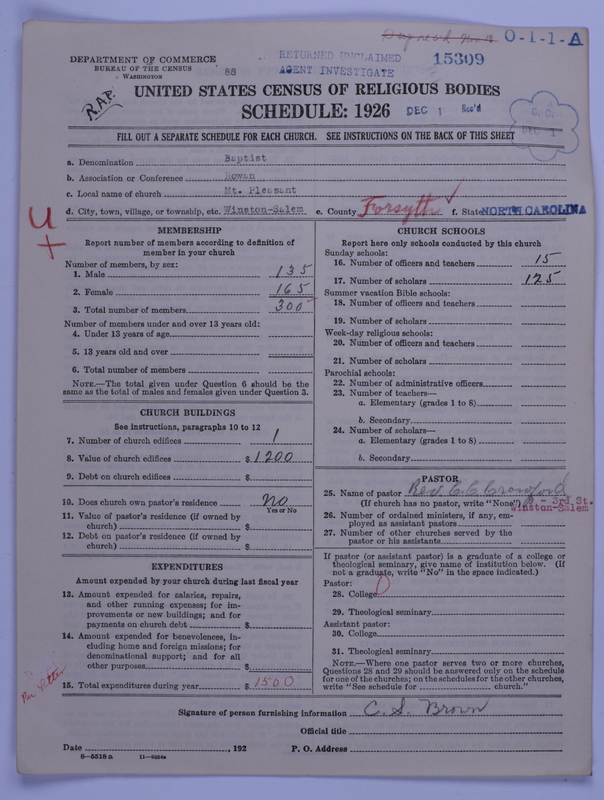 O-1-1-A
DEPARTMENT OF COMMERCE
BUREAU OF THE CENSUS
WASHINGTON
88
RETURNED UNCLAIMED
AGENT INVESTIGATE
15309
R.A.P.
UNITED STATES CENSUS OF RELIGIOUS BODIES
SCHEDULE: 1926
DEC 1 Rec'd
FILL OUT A SEPARATE SCHEDULE FOR EACH CHURCH. SEE INSTRUCTIONS ON THE BACK OF THIS SHEET
a. Denomination Baptist
b. Association or Conference Rowan
c. Local name of church Mt. Pleasant
d. City, town, village, or township, etc. Winston-Salem e. County Forsyth f. State NORTH CAROLINA
MEMBERSHIP
Report number of members according to definition of
member in your church
Number of members, by sex:
1. Male 135
2. Female 165
3. Total number of members 300
Number of members under and over 13 years old:
4. Under 13 years of age
5. 13 years old and over
6. Total number of members
NOTE.—The total given under Question 6 should be the
same as the total of males and females given under Question 3.
CHURCH BUILDINGS
See instructions, paragraphs 10 to 12
7. Number of church edifices 1
8. Value of church edifices $ 1200
9. Debt on church edifices $
10. Does church own pastor's residence No
Yes or No
11. Value of pastor's residence (if owned by
church) $
12. Debt on pastor's residence (if owned by
church) $
EXPENDITURES
Amount expended by your church during last fiscal year
13. Amount expended for salaries, repairs,
and other running expenses; for im-
provements or new buildings; and for
payments on church debt $
14. Amount expended for benevolences, in-
cluding home and foreign missions; for
denominational support; and for all
other purposes $
Per letter
15. Total expenditures during year $ 1500
CHURCH SCHOOLS
Report here only schools conducted by this church
Sunday schools:
16. Number of officers and teachers 15
17. Number of scholars 125
Summer vacation Bible schools:
18. Number of officers and teachers
19. Number of scholars
Week-day religious schools:
20. Number of officers and teachers
21. Number of scholars
Parochial schools:
22. Number of administrative officers
23. Number of teachers—
a. Elementary (grades 1 to 8)
b. Secondary
24. Number of scholars—
a. Elementary (grades 1 to 8)
b. Secondary
PASTOR
25. Name of pastor Rev. C. C. Crawford
(If church has no pastor, write "None") - 3rd St.
Winston-Salem
26. Number of ordained ministers, if any, em-
ployed as assistant pastors
27. Number of other churches served by the
pastor or his assistants
If pastor (or assistant pastor) is a graduate of a college or
theological seminary, give name of institution below. (If
not a graduate, write "No" in the space indicated.)
Pastor:
28. College
29. Theological seminary
Assistant pastor:
30. College
31. Theological seminary
NOTE.—Where one pastor serves two or more churches,
Questions 28 and 29 should be answered only on the schedule
for one of the churches; on the schedules for the other churches,
write "See schedule for church."
Signature of person furnishing information C. S. Brown
Official title
Date , 192 P. O. Address
8—5518 a